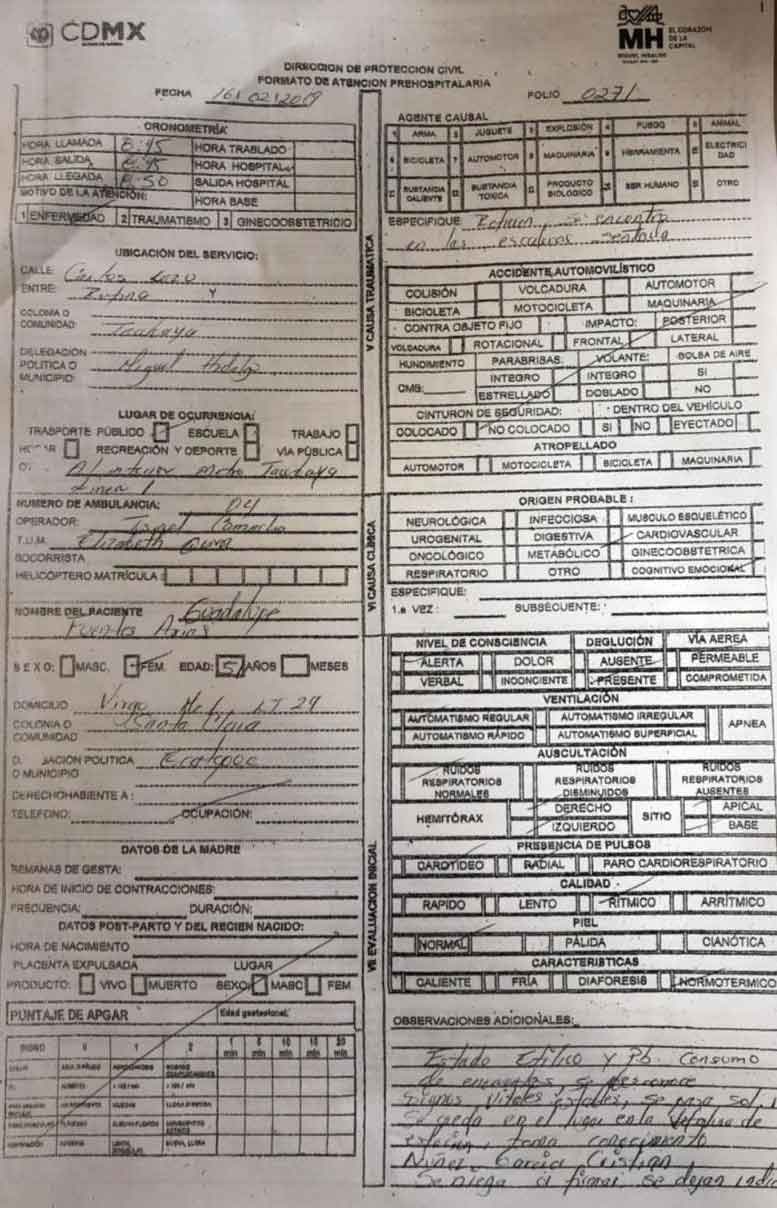 1
CDMX
MH
MIGUEL HIDALGO
EL CORAZÓN
DE LA
CAPITAL
DIRECCION DE PROTECCION CIVIL
FORMATO DE ATENCION PREHOSPITALARIA
FECHA 16/02/2019
FOLIO 0271
CRONOMETRÍA
HORA LLAMADA 8:45 HORA TRABLADO
HORA SALIDA 8:45 HORA HOSPITAL
HORA LLEGADA 8:50 SALIDA HOSPITAL
MOTIVO DE LA ATENCIÓN: HORA BASE
1 ENFERMEDAD 2 TRAUMATISMO 3 GINECOOBSTETRICIO
UBICACIÓN DEL SERVICIO:
CALLE: Carlos Lazo
ENTRE: Y
COLONIA O
COMUNIDAD: Tacubaya
DELEGACIÓN
POLITICA O
MUNICIPIO: Miguel Hidalgo
LUGAR DE OCURRENCIA:
TRASPORTE PÚBLICO ESCUELA TRABAJO
RECREACIÓN Y DEPORTE VÍA PÚBLICA
Al interior metro Tacubaya
Linea 1
NUMERO DE AMBULANCIA: 04
OPERADOR: Israel Camacho
T.U.M. Elizabeth
SOCORRISTA
HELICÓPTERO MATRÍCULA:
NOMBRE DEL PACIENTE Guadalupe
Fuentes Arias
SEXO: MASC. FEM. EDAD: AÑOS MESES
DOMICILIO Virgo LT 24
COLONIA O Santa Clara
COMUNIDAD
POLITICA Ecatepec
O MUNICIPIO
DERECHOHABIENTE A:
TELEFONO: OCUPACIÓN:
DATOS DE LA MADRE
SEMANAS DE GESTA:
HORA DE INICIO DE CONTRACCIONES:
FRECUENCIA: DURACIÓN:
DATOS POST-PARTO Y DEL RECIEN NACIDO:
HORA DE NACIMIENTO
PLACENTA EXPULSADA LUGAR
PRODUCTO: VIVO MUERTO SEXO: MASC FEM
PUNTAJE DE APGAR
Edad gestacional:
SIGNO 0 1 2 1 min 5 min 10 min 15 min 20 min
V CAUSA TRAUMATICA
VI CAUSA CLINICA
VII EVALUACION INICIAL
AGENTE CAUSAL
1 ARMA 2 JUGUETE 3 EXPLOSIÓN 4 FUEGO 5 ANIMAL
6 BICICLETA 7 AUTOMOTOR 8 MAQUINARIA 9 HERRAMIENTA 10 ELECTRICIDAD
11 SUSTANCIA CALIENTE 12 SUSTANCIA TOXICA 13 PRODUCTO BIOLOGICO 14 SER HUMANO 15 OTRO
ESPECIFIQUE se encontro
en las escaleras sentada
ACCIDENTE AUTOMOVILÍSTICO
COLISIÓN VOLCADURA AUTOMOTOR
BICICLETA MOTOCICLETA MAQUINARIA
CONTRA OBJETO FIJO IMPACTO: POSTERIOR
VOLCADURA ROTACIONAL FRONTAL LATERAL
HUNDIMIENTO PARABRIBAS: VOLANTE: BOLSA DE AIRE
CMS: INTEGRO INTEGRO SI
ESTRELLADO DOBLADO NO
CINTURON DE SEGURIDAD: DENTRO DEL VEHÍCULO
COLOCADO NO COLOCADO SI NO EYECTADO
ATROPELLADO
AUTOMOTOR MOTOCICLETA BICICLETA MAQUINARIA
ORIGEN PROBABLE :
NEUROLÓGICA INFECCIOSA MUSCULO ESQUELÉTICO
UROGENITAL DIGESTIVA CARDIOVASCULAR
ONCOLÓGICO METABÓLICO GINECOOBSTETRICA
RESPIRATORIO OTRO COGNITIVO EMOCIONAL
ESPECIFIQUE:
1.a VEZ : SUBSECUENTE:
NIVEL DE CONSCIENCIA DEGLUCIÓN VÍA AEREA
ALERTA DOLOR AUSENTE PERMEABLE
VERBAL INCONCIENTE PRESENTE COMPROMETIDA
VENTILACIÓN
AUTOMATISMO REGULAR AUTOMATISMO IRREGULAR APNEA
AUTOMATISMO RÁPIDO AUTOMATISMO SUPERFICIAL
AUSCULTACIÓN
RUIDOS RESPIRATORIOS NORMALES RUIDOS RESPIRATORIOS DISMINUIDOS RUIDOS RESPIRATORIOS AUSENTES
HEMITÓRAX DERECHO SITIO APICAL
IZQUIERDO BASE
PRESENCIA DE PULSOS
CAROTÍDEO RADIAL PARO CARDIORESPIRATORIO
CALIDAD
RAPIDO LENTO RÍTMICO ARRÍTMICO
PIEL
NORMAL PÁLIDA CIANÓTICA
CARACTERISTICAS
CALIENTE FRÍA DIAFORESIS NORMOTERMICO
OBSERVACIONES ADICIONALES:
Estado Etílico y Pb. Consumo
de enervantes, se desconoce
Signos Vitales estables, se
Se queda en el lugar en la de
estación, toma conocimiento
Nuñez Garcia Cristian
Se niega a firmar se dejan